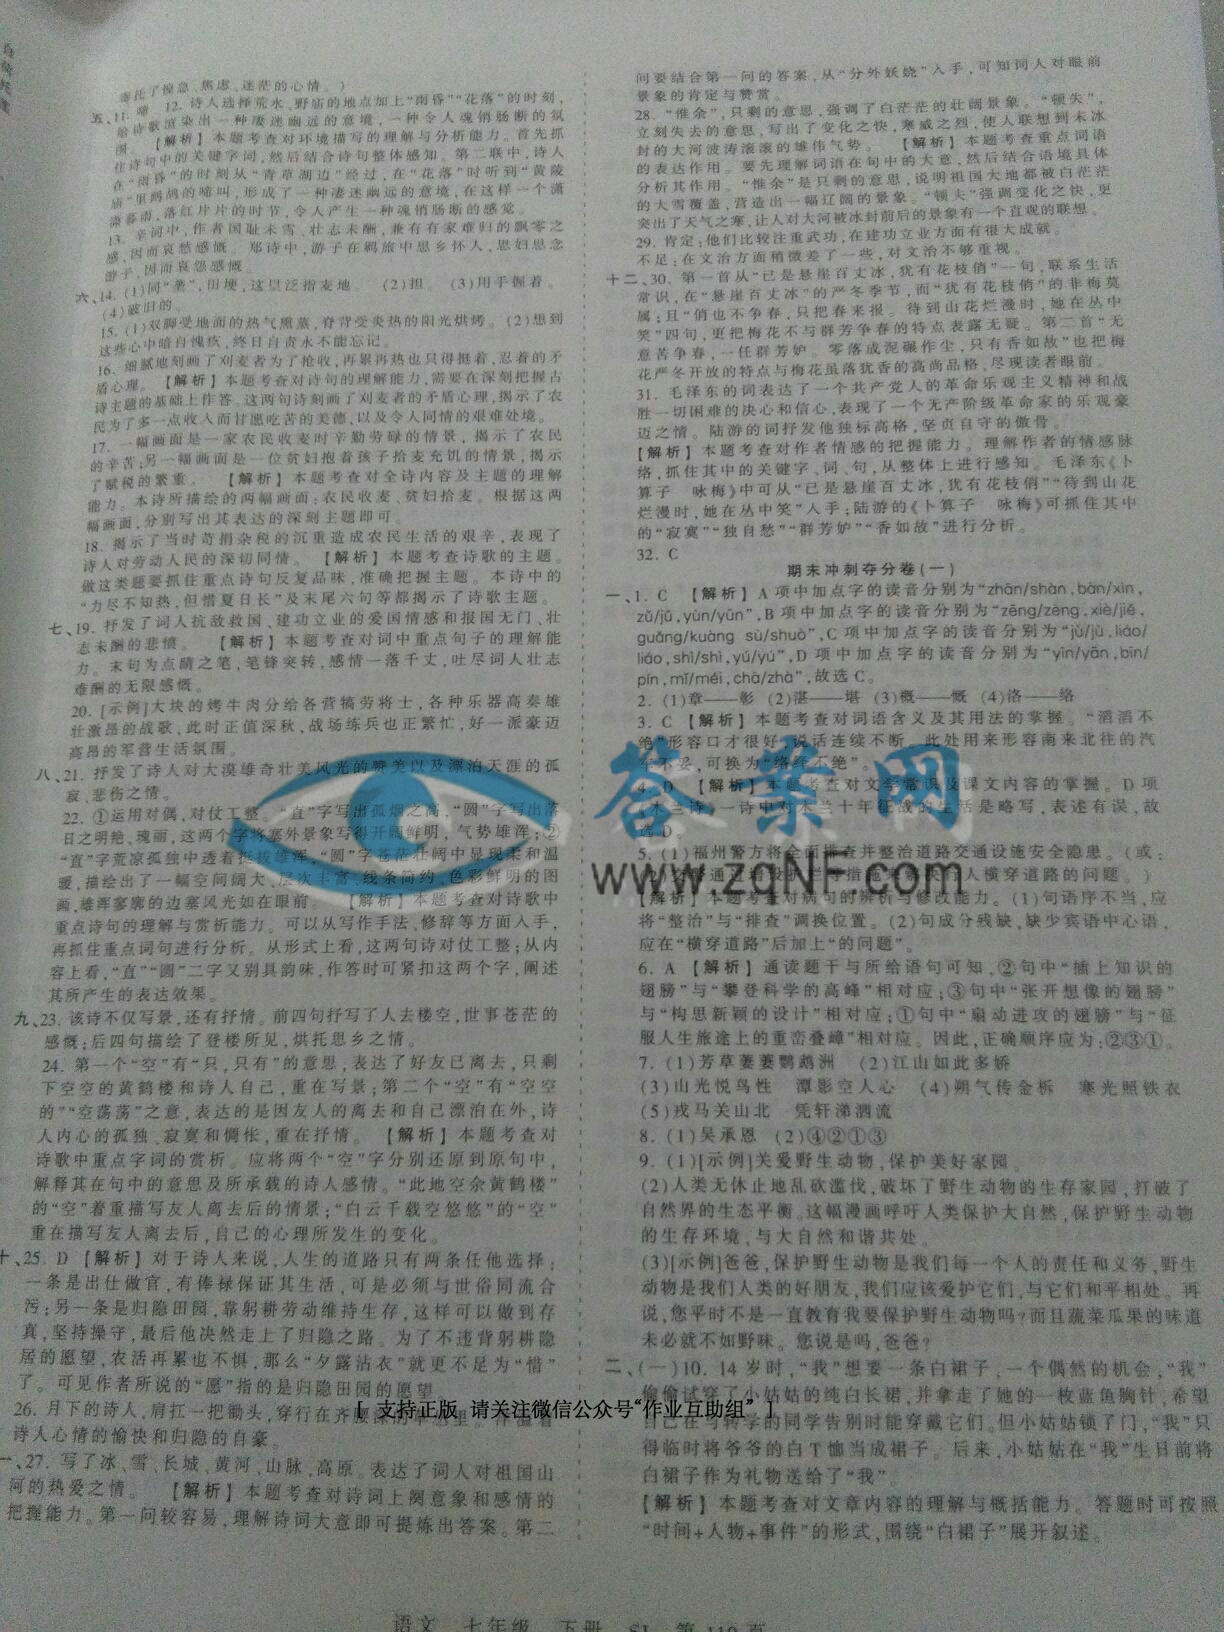 寄托了惶急、焦虑、迷茫的心情。)
五、11. 啼 12. 诗人选择荒水、野庙的地点加上“雨昏”“花落”的时刻,
给诗歌渲染出一种凄迷幽远的意境,一种令人魂销肠断的氛
围。 【解析】本题考查对环境描写的理解与分析能力。首先抓
住诗句中的关键字词,然后结合诗句整体感知。第二联中,诗人
在“雨昏”的时刻从“青草湖边”经过,在“花落”时听到“黄陵
庙”里鹧鸪的啼叫,形成了一种凄迷幽远的意境,在这样一个潇
潇暮雨,落红片片的时节,令人产生一种魂销肠断的感觉。
13. 辛词中,作者国耻未雪、壮志未酬,兼有有家难归的飘零之
感,因而哀愁感慨。 郑诗中,游子在羁旅中思乡怀人,思妇思念
游子,因而哀怨感慨。
六、14. (1)同“垄”,田埂,这里泛指麦地。 (2)担。 (3)用手握着。
(4)破旧的。
15. (1)双脚受地面的热气熏蒸,脊背受炎热的阳光烘烤。(2)想到
这些心中暗自愧疚,终日自责永不能忘记。
16. 细腻地刻画了刈麦者为了抢收,再累再热也只得挺着,忍着的矛
盾心理。 【解析】本题考查对诗句的理解能力,需要在深刻把握古
诗主题的基础上作答。这两句诗刻画了刈麦者的矛盾心理,揭示了农
民为了多一点收入而甘愿吃苦的美德,以及令人同情的艰难处境。
17. 一幅画面是一家农民收麦时辛勤劳碌的情景,揭示了农民
的辛苦;另一幅画面是一位贫妇抱着孩子拾麦充饥的情景,揭示
了赋税的繁重。 【解析】本题考查对全诗内容及主题的理解
能力。本诗所描绘的两幅画面:农民收麦、贫妇拾麦。根据这两
幅画面,分别写出其表达的深刻主题即可。
18. 揭示了当时苛捐杂税的沉重造成农民生活的艰辛,表现了
诗人对劳动人民的深切同情。 【解析】本题考查诗歌的主题。
做这类题要抓住重点诗句反复品味,准确把握主题。本诗中的
“力尽不知热,但惜夏日长”及末尾六句等都揭示了诗歌主题。
七、19. 抒发了词人抗敌救国、建功立业的爱国情感和报国无门、壮
志未酬的悲愤。 【解析】本题考查对词中重点句子的理解能
力。末句为点睛之笔,笔锋突转,感情一落千丈,吐尽词人壮志
难酬的无限感慨。
20. [示例]大块的烤牛肉分给各营犒劳将士,各种乐器高奏雄
壮激昂的战歌,此时正值深秋,战场练兵也正繁忙,好一派豪迈
高昂的军营生活氛围。
八、21. 抒发了诗人对大漠雄奇壮美风光的赞美以及漂泊天涯的孤
寂、悲伤之情。
22. ①运用对偶,对仗工整。“直”字写出孤烟之高,“圆”字写出落
日之明艳、瑰丽,这两个字将塞外景象写得开阔鲜明,气势雄浑;②
“直”字荒凉孤独中透着挺拔雄浑,“圆”字苍茫壮阔中显现柔和温
暖,描绘出了一幅空间阔大、层次丰富、线条简约、色彩鲜明的图
画,雄浑寥廓的边塞风光如在眼前。 【解析】本题考查对诗歌中
重点诗句的理解与赏析能力。可以从写作手法、修辞等方面入手,
再抓住重点词句进行分析。从形式上看,这两句诗对仗工整;从内
容上看,“直”“圆”二字又别具韵味,作答时可紧扣这两个字,阐述
其所产生的表达效果。
九、23. 该诗不仅写景,还有抒情。前四句抒写了人去楼空,世事苍茫的
感慨;后四句描绘了登楼所见,烘托思乡之情。
24. 第一个“空”有“只,只有”的意思,表达了好友已离去,只剩
下空空的黄鹤楼和诗人自己,重在写景;第二个“空”有“空空
的”“空荡荡”之意,表达的是因友人的离去和自己漂泊在外,诗
人内心的孤独、寂寞和惆怅,重在抒情。 【解析】本题考查对
诗歌中重点字词的赏析。应将两个“空”字分别还原到原句中,
解释其在句中的意思及所承载的诗人感情。“此地空余黄鹤楼”
的“空”着重描写友人离去后的情景;“白云千载空悠悠”的“空”
重在描写友人离去后,自己的心理所发生的变化。
十、25. D 【解析】对于诗人来说,人生的道路只有两条任他选择:
一条是出仕做官,有俸禄保证其生活,可是必须与世俗同流合
污;另一条是归隐田园,靠躬耕劳动维持生存,这样可以做到存
真,坚持操守,最后他决然走上了归隐之路。为了不违背躬耕隐
居的愿望,农活再累也不惧,那么“夕露沾衣”就更不足为“惜”
了。可见作者所说的“愿”指的是归隐田园的愿望。
26. 月下的诗人,肩扛一把锄头,穿行在齐腰深的草
诗人心情的愉快和归隐的自豪。
一、27. 写了冰、雪、长城、黄河、山脉、高原。表达了词人对祖国山
河的热爱之情。 【解析】本题考查对诗词上阕意象和感情的
把握能力。第一问较容易,理解诗词大意即可提炼出答案。第二
问要结合第一问的答案,从“分外妖娆”入手,可知词人对眼前
景象的肯定与赞赏。
28. “惟余”,只剩的意思,强调了白茫茫的壮阔景象。“顿失”,
立刻失去的意思,写出了变化之快,寒威之烈,使人联想到未冰
封的大河波涛滚滚的雄伟气势。 【解析】本题考查重点词语
的表达作用。要先理解词语在句中的大意,然后结合语境具体
分析其作用。“惟余”是只剩的意思,说明祖国大地都被白茫茫
的大雪覆盖,营造出一幅辽阔的景象。“顿失”强调变化之快,更
突出了天气之寒,让人对大河被冰封前后的景象有一个直观的联想。
29. 肯定:他们比较注重武功,在建功立业方面有很大成就。
不足:在文治方面稍微差了一些,对文治不够重视。
十二、30. 第一首从“已是悬崖百丈冰,犹有花枝俏”一句,联系生活
常识,在“悬崖百丈冰”的严冬季节,而“犹有花枝俏”的非梅莫
属;且“俏也不争春,只把春来报。待到山花烂漫时,她在丛中
笑”四句,更把梅花不与群芳争春的特点表露无疑。第二首“无
意苦争春,一任群芳妒。零落成泥碾作尘,只有香如故”也把梅
花严冬开放的特点与梅花虽落犹香的高尚品格,尽现读者眼前。
31. 毛泽东的词表达了一个共产党人的革命乐观主义精神和战
胜一切困难的决心和信心,表现了一个无产阶级革命家的乐观豪
迈之情。陆游的词抒发他独标高格,坚贞自守的傲骨。
【解析】本题考查对作者情感的把握能力。理解作者的情感脉
络,抓住其中的关键字、词、句,从整体上进行感知。毛泽东《卜
算子 咏梅》中可从“已是悬崖百丈冰,犹有花枝俏”“待到山花
烂漫时,她在丛中笑”入手;陆游的《卜算子 咏梅》可抓住其中
的“寂寞”“独自愁”“群芳妒”“香如故”进行分析。
32. C
期末冲刺夺分卷(一)
一、1. C 【解析】A项中加点字的读音分别为“zhān/shàn,bàn/xìn,
zǔ/jǔ,yùn/yūn”,B项中加点字的读音分别为“zēng/zèng,xiè/jiě,
guāng/kuàng sù/shuò”,C项中加点字的读音分别为“jù/jù,liáo/
liáo,shì/shì,yǔ/yǔ”,D项中加点字的读音分别为“yīn/yān,bīn/
pín,mǐ/méi,chà/zhà”,故选C。
2. (1)章——彰 (2)湛——堪 (3)概——慨 (4)洛——络
3. C 【解析】本题考查对词语含义及其用法的掌握。“滔滔不
绝”形容口才很好,说话连续不断。此处用来形容南来北往的汽
车不妥,可换为“络绎不绝”。
4. D 【解析】本题考查对文学常识及课文内容的掌握。D项
《木兰诗》一诗中对木兰十年征战的生活是略写,表述有误,故
选D。
5. (1)福州警方将全面排查并整治道路交通设施安全隐患。(或:
【解析】本题考查对病句的辨析与修改能力。(1)句语序不当,应
将“整治”与“排查”调换位置。(2)句成分残缺,缺少宾语中心语,
应在“横穿道路”后加上“的问题”。
6. A 【解析】通读题干与所给语句可知,②句中“插上知识的
翅膀”与“攀登科学的高峰”相对应;③句中“张开想像的翅膀”
与“构思新颖的设计”相对应;①句中“扇动进攻的翅膀”与“征
服人生旅途上的重峦叠嶂”相对应。因此,正确顺序应为:②③①。
7. (1)芳草萋萋鹦鹉洲 (2)江山如此多娇
(3)山光悦鸟性 潭影空人心 (4)朔气传金柝 寒光照铁衣
(5)戎马关山北 凭轩涕泗流
8. (1)吴承恩 (2)④②①③
9. (1)[示例]关爱野生动物,保护美好家园。
(2)人类无休止地乱砍滥伐,破坏了野生动物的生存家园,打破了
自然界的生态平衡。这幅漫画呼吁人类保护大自然,保护野生动物
的生存环境,与大自然和谐共处。
(3)[示例]爸爸,保护野生动物是我们每一个人的责任和义务,野生
动物是我们人类的好朋友,我们应该爱护它们,与它们和平相处。再
说,您平时不是一直教育我要保护野生动物吗?而且蔬菜瓜果的味道
未必就不如野味。您说是吗,爸爸?
二、(一)10. 14岁时,“我”想要一条白裙子,一个偶然的机会,“我”
偷偷试穿了小姑姑的纯白长裙,并拿走了她的一枚蓝鱼胸针,希望
自己在与转学的同学告别时能穿戴它们。但小姑姑锁了门,“我”只
得临时将爷爷的白T恤当成裙子。后来,小姑姑在“我”生日前将
白裙子作为礼物送给了“我”。
【解析】本题考查对文章内容的理解与概括能力。答题时可按照
“时间+人物+事件”的形式,围绕“白裙子”展开叙述。
答案网
www.zqNF.com
[ 支持正版, 请关注微信公众号“作业互助组” ]
语文 七年级 下册 SJ 第110页